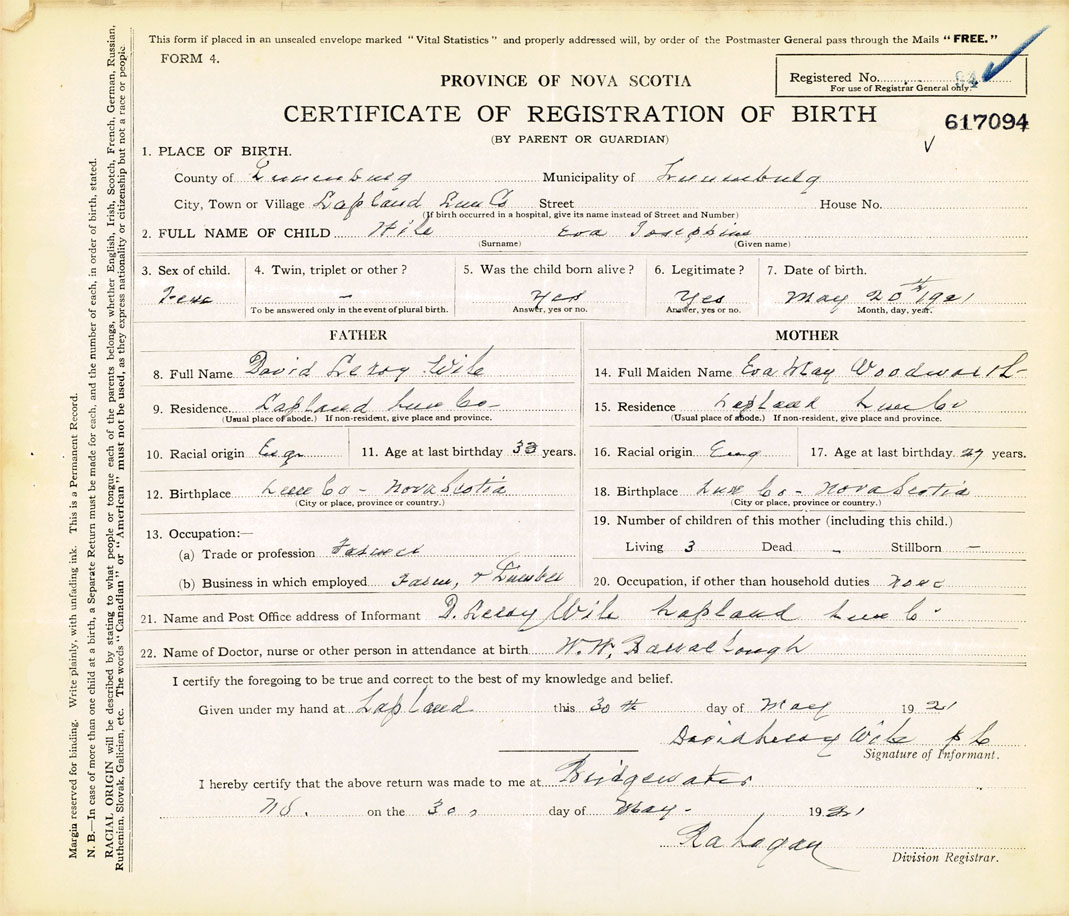 This form if placed in an unsealed envelope marked "Vital Statistics" and properly addressed will, by order of the Postmaster General pass through the Mails "FREE."
FORM 4.
Registered No.
For use of Registrar General only.
PROVINCE OF NOVA SCOTIA
CERTIFICATE OF REGISTRATION OF BIRTH
617094
(BY PARENT OR GUARDIAN)
1. PLACE OF BIRTH.
County of Lunenburg Municipality of Lunenburg
City, Town or Village Lapland Lun Co Street House No.
(If birth occurred in a hospital, give its name instead of Street and Number)
2. FULL NAME OF CHILD Wile Eva Josephine
(Surname) (Given name)
3. Sex of child. 4. Twin, triplet or other? 5. Was the child born alive? 6. Legitimate? 7. Date of birth.
Fem — Yes Yes May 20th 1921
To be answered only in the event of plural birth. Answer, yes or no. Answer, yes or no. Month, day, year.
FATHER
8. Full Name David Leroy Wile
9. Residence Lapland Lun Co
(Usual place of abode.) If non-resident, give place and province.
10. Racial origin Eng 11. Age at last birthday 33 years.
12. Birthplace Lun Co - Nova Scotia
(City or place, province or country.)
13. Occupation:—
(a) Trade or profession Farmer
(b) Business in which employed Farm, & Lumber
MOTHER
14. Full Maiden Name Eva May Woodworth
15. Residence Lapland Lun Co
(Usual place of abode.) If non-resident, give place and province.
16. Racial origin Eng 17. Age at last birthday 27 years.
18. Birthplace Lun Co - Nova Scotia
(City or place, province or country.)
19. Number of children of this mother (including this child.)
Living 3 Dead - Stillborn —
20. Occupation, if other than household duties none
21. Name and Post Office address of Informant D. Leroy Wile Lapland Lun Co
22. Name of Doctor, nurse or other person in attendance at birth W. W.
I certify the foregoing to be true and correct to the best of my knowledge and belief.
Given under my hand at Lapland this 30th day of May 1921
David Leroy Wile
Signature of Informant.
I hereby certify that the above return was made to me at Bridgewater
NS. on the 30 day of May - 1921
Logan
Division Registrar.
Margin reserved for binding. Write plainly, with unfading ink. This is a Permanent Record.
N. B.—In case of more than one child at a birth, a Separate Return must be made for each, and the number of each, in order of birth, stated.
RACIAL ORIGIN will be described by stating to what people or tongue each of the parents belongs, whether English, Irish, Scotch, French, German, Russian,
Ruthenian, Slovak, Galician, etc. The words "Canadian" or "American" must not be used, as they express nationality or citizenship but not a race or people